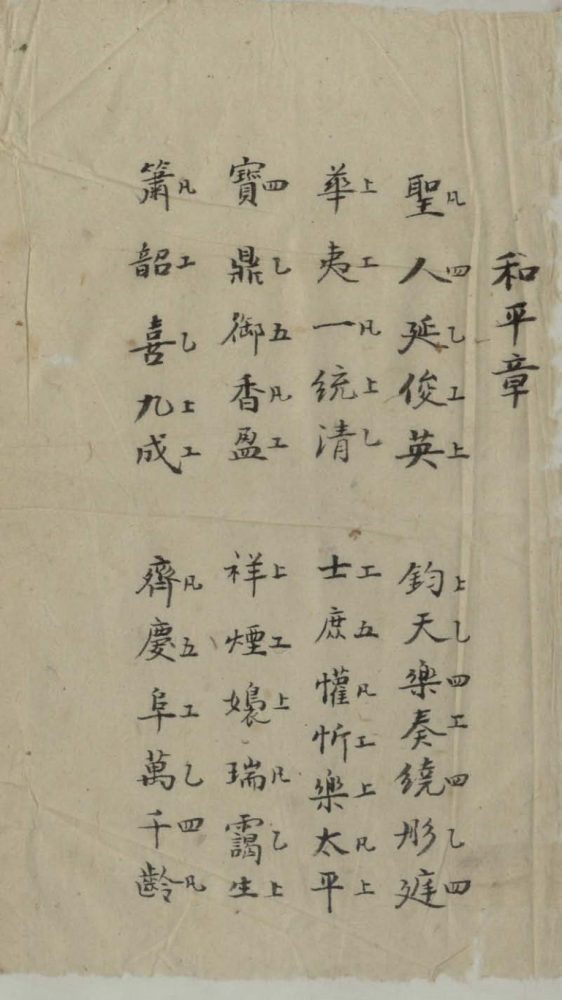 和平章
聖凡人四延乙俊工英上 鈞上天乙樂四奏工繞四彤乙庭四
華上夷工一凡統上清乙 士工庶五懽凡忻工樂上太凡平上
寶四鼎乙御五香凡盈工 祥上煙工嬝上瑞凡靄乙生上
簫凡韶工喜乙九上成工 齊凡慶五阜工萬乙千四齡凡